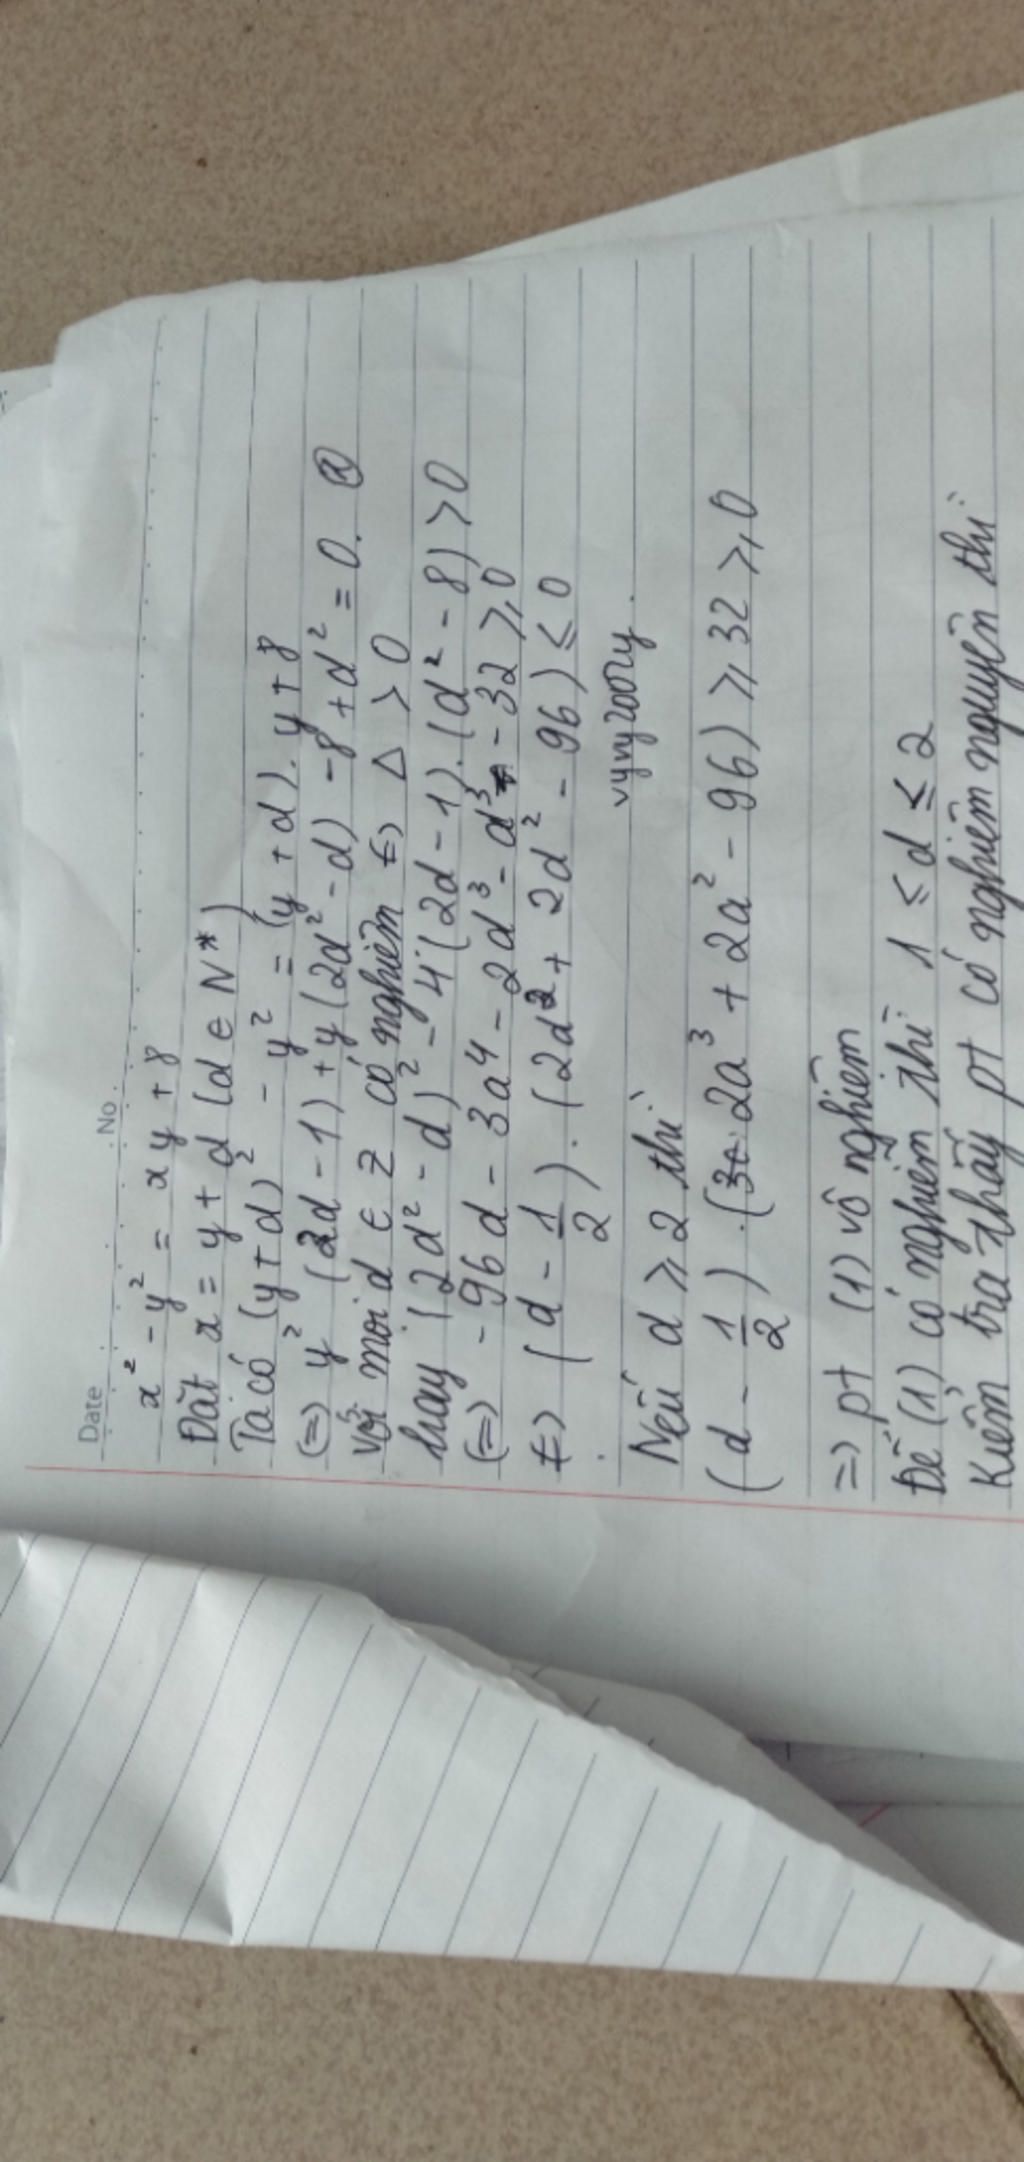 Date No
x² - y² = xy + 8
Đặt x = y + d (d ∈ N*)
Ta có (y + d)² - y² = (y + d). y + 8
(=) y² (2d - 1) + y (2d² - d) - 8 + d² = 0.
Với mọi d ∈ Z có nghiệm (=) Δ > 0
hay (2d² - d)² - 4 (2d - 1). (d² - 8) > 0
(=) - 96d - 3d⁴ - 2d³ - d³ - 32 ≥ 0
(=) (d - 1/2). (2d² + 2d² - 96) ≤ 0
vyvy2007y.
Nếu d ≥ 2 thì
(d - 1/2). (2a³ + 2a² - 96) ≥ 32 ≥ 0
=) pt (1) vô nghiệm
Để (1) có nghiệm thì 1 ≤ d ≤ 2
Kiểm tra thấy pt có nghiệm nguyên thì